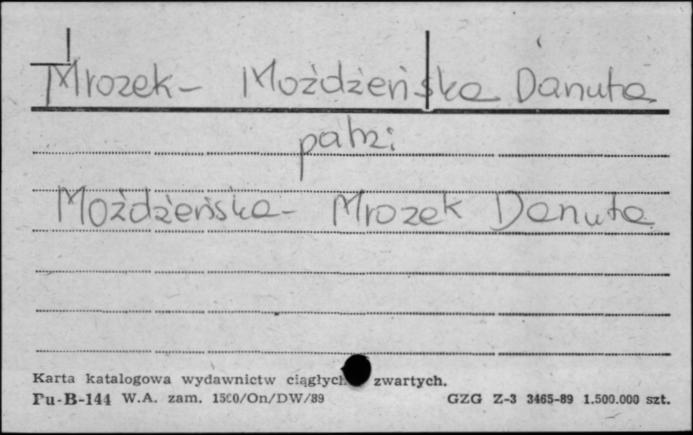 Mrozek- Moździeńska Danuta
patrz:
Moździeńska- Mrozek Danuta
Karta katalogowa wydawnictw ciągłych zwartych.
Pu-B-144 W.A. zam. 1500/On/DW/89 GZG Z-3 3465-89 1.500.000 szt.